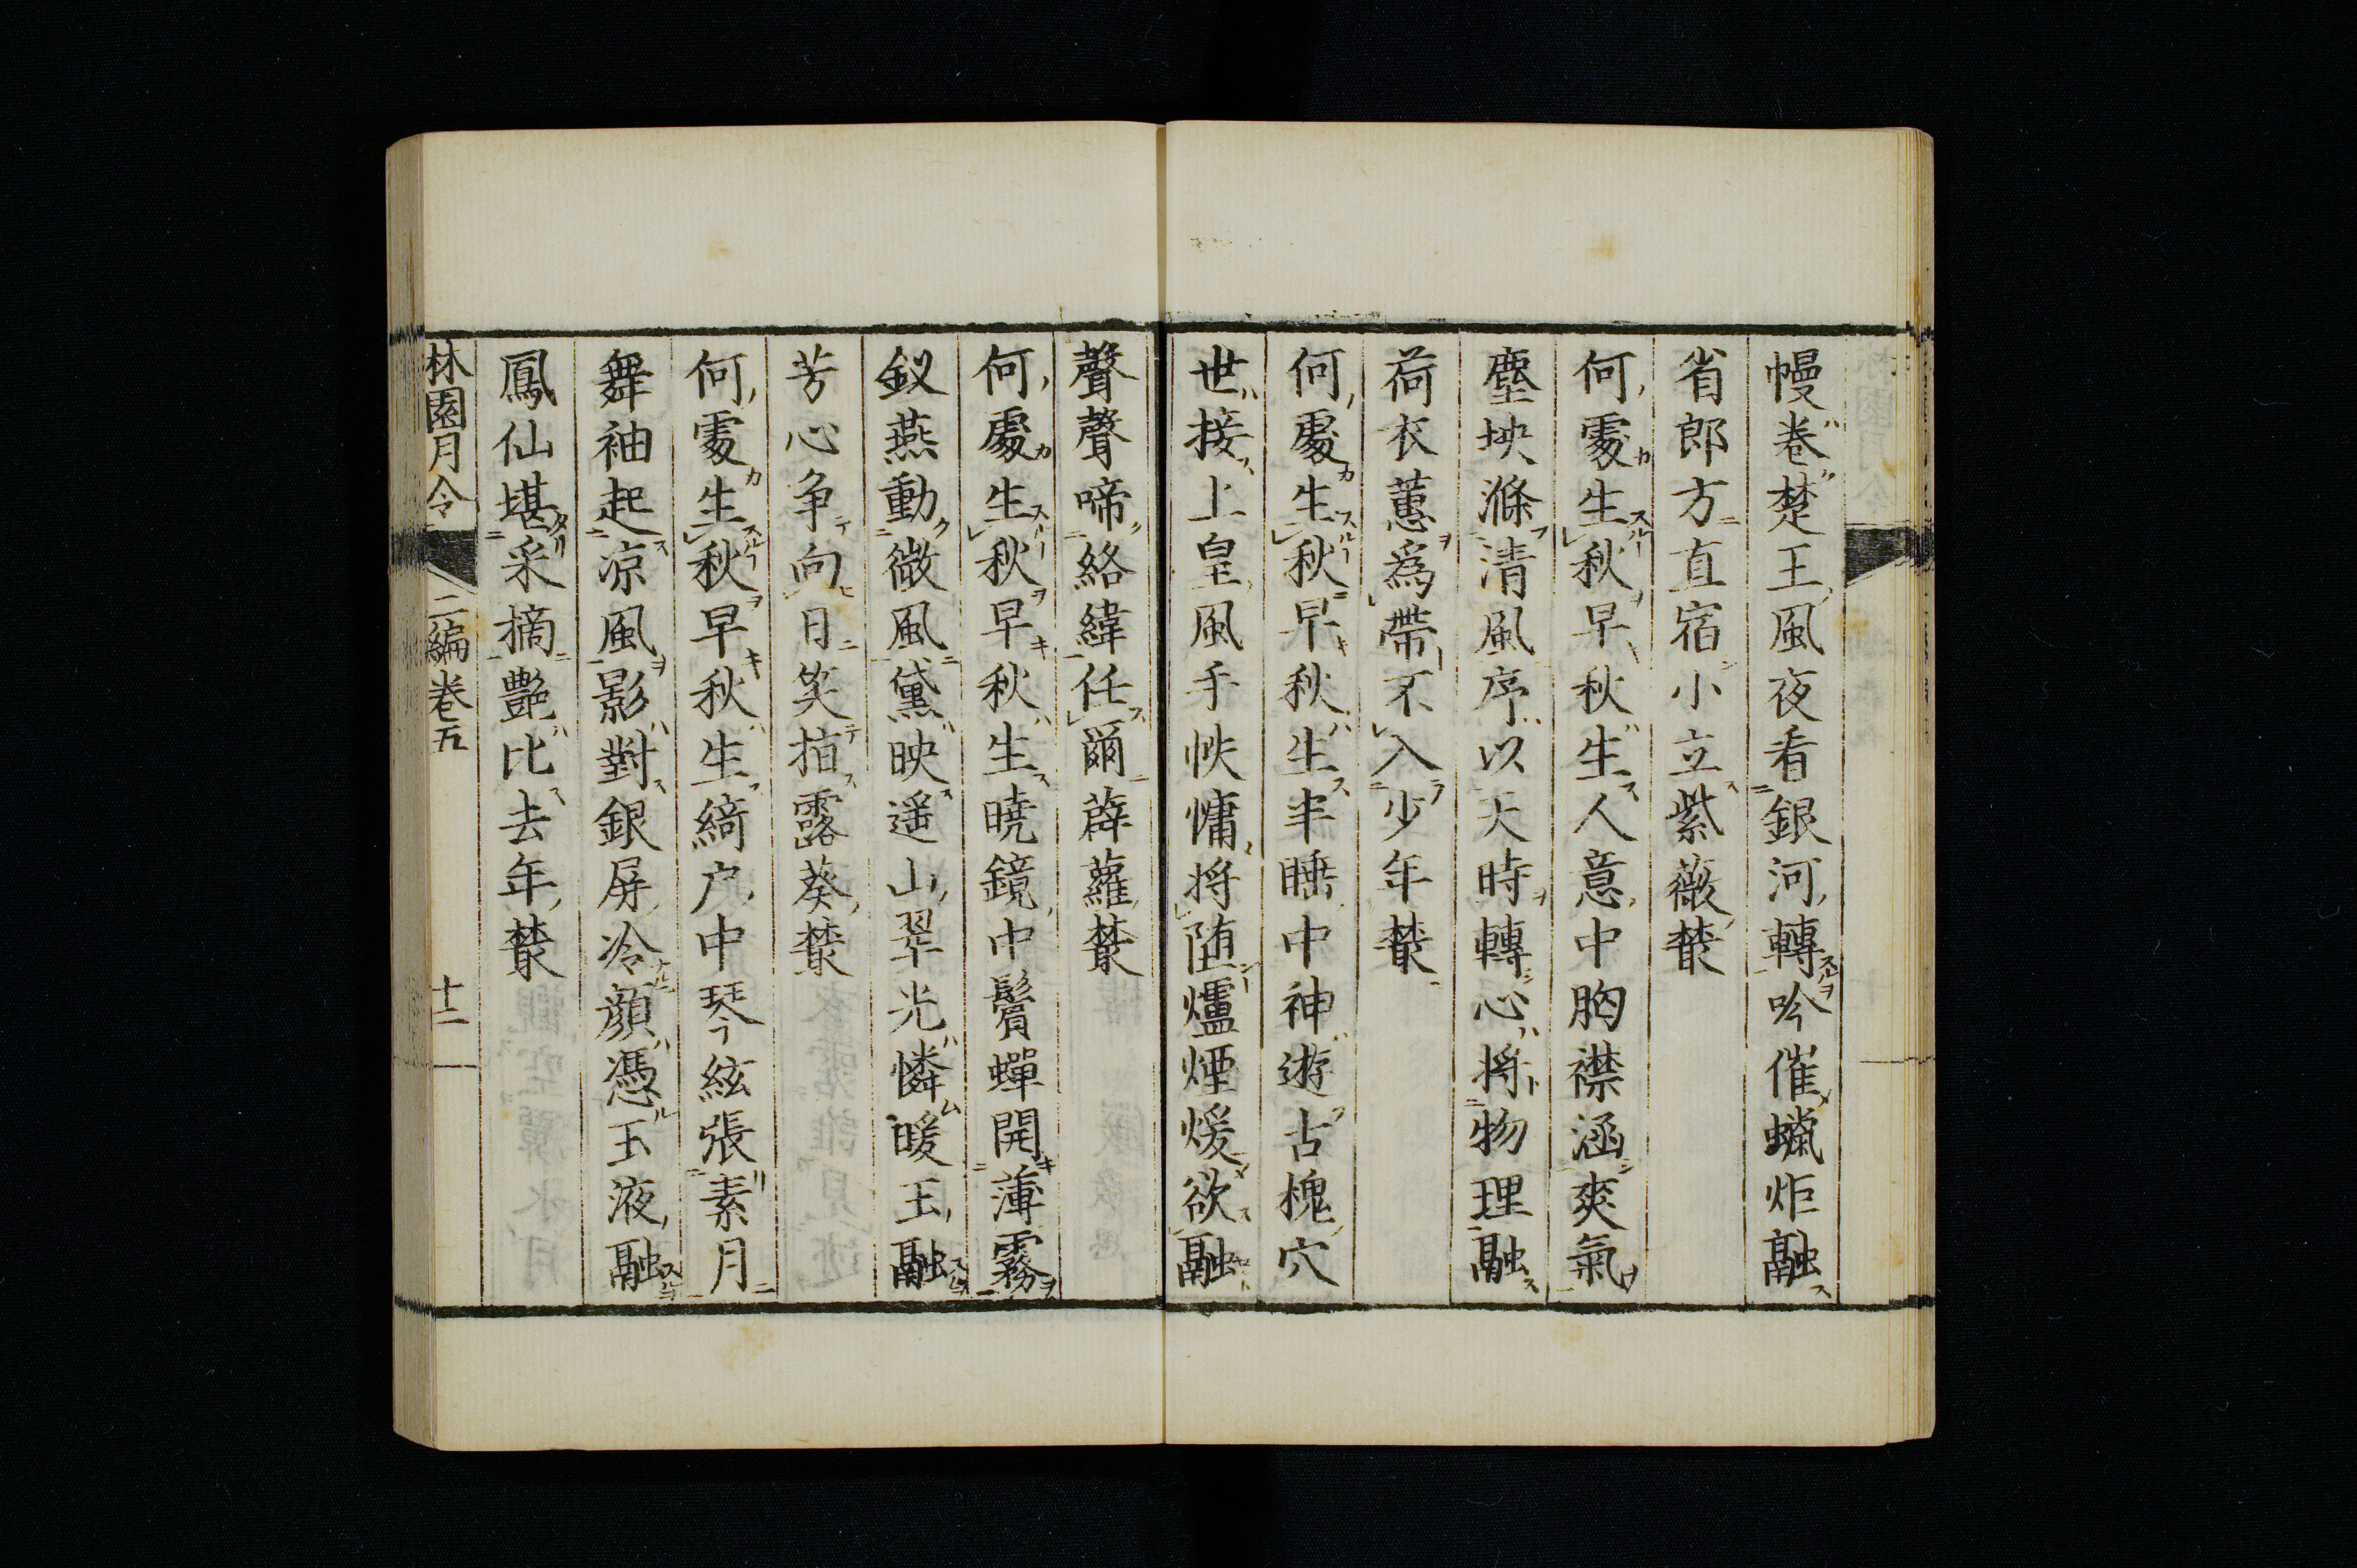 幔卷楚王風夜看銀河轉吟催蠟炬融
省郎方直宿小立紫薇叢
何處生秋早秋生人意中胸襟涵爽氣
塵坱滌清風序以天時轉心將物理融
荷衣蕙爲帶不入少年叢
何處生秋早秋生半睡中神遊古槐穴
世接上皇風手帙慵將堕爐煙煖欲融
聲聲啼絡緯任爾薜蘿叢
何處生秋早秋生曉鏡中鬢蟬開薄霧
釵燕動微風黛映遥山翠光憐暖玉融
芳心争向日笑拍露葵叢
何處生秋早秋生綺户中琴絃張素月
舞袖起凉風影對銀屏冷顔憑玉液融
鳳仙堪采摘艷比去年叢
林園月令 二編卷五 十二